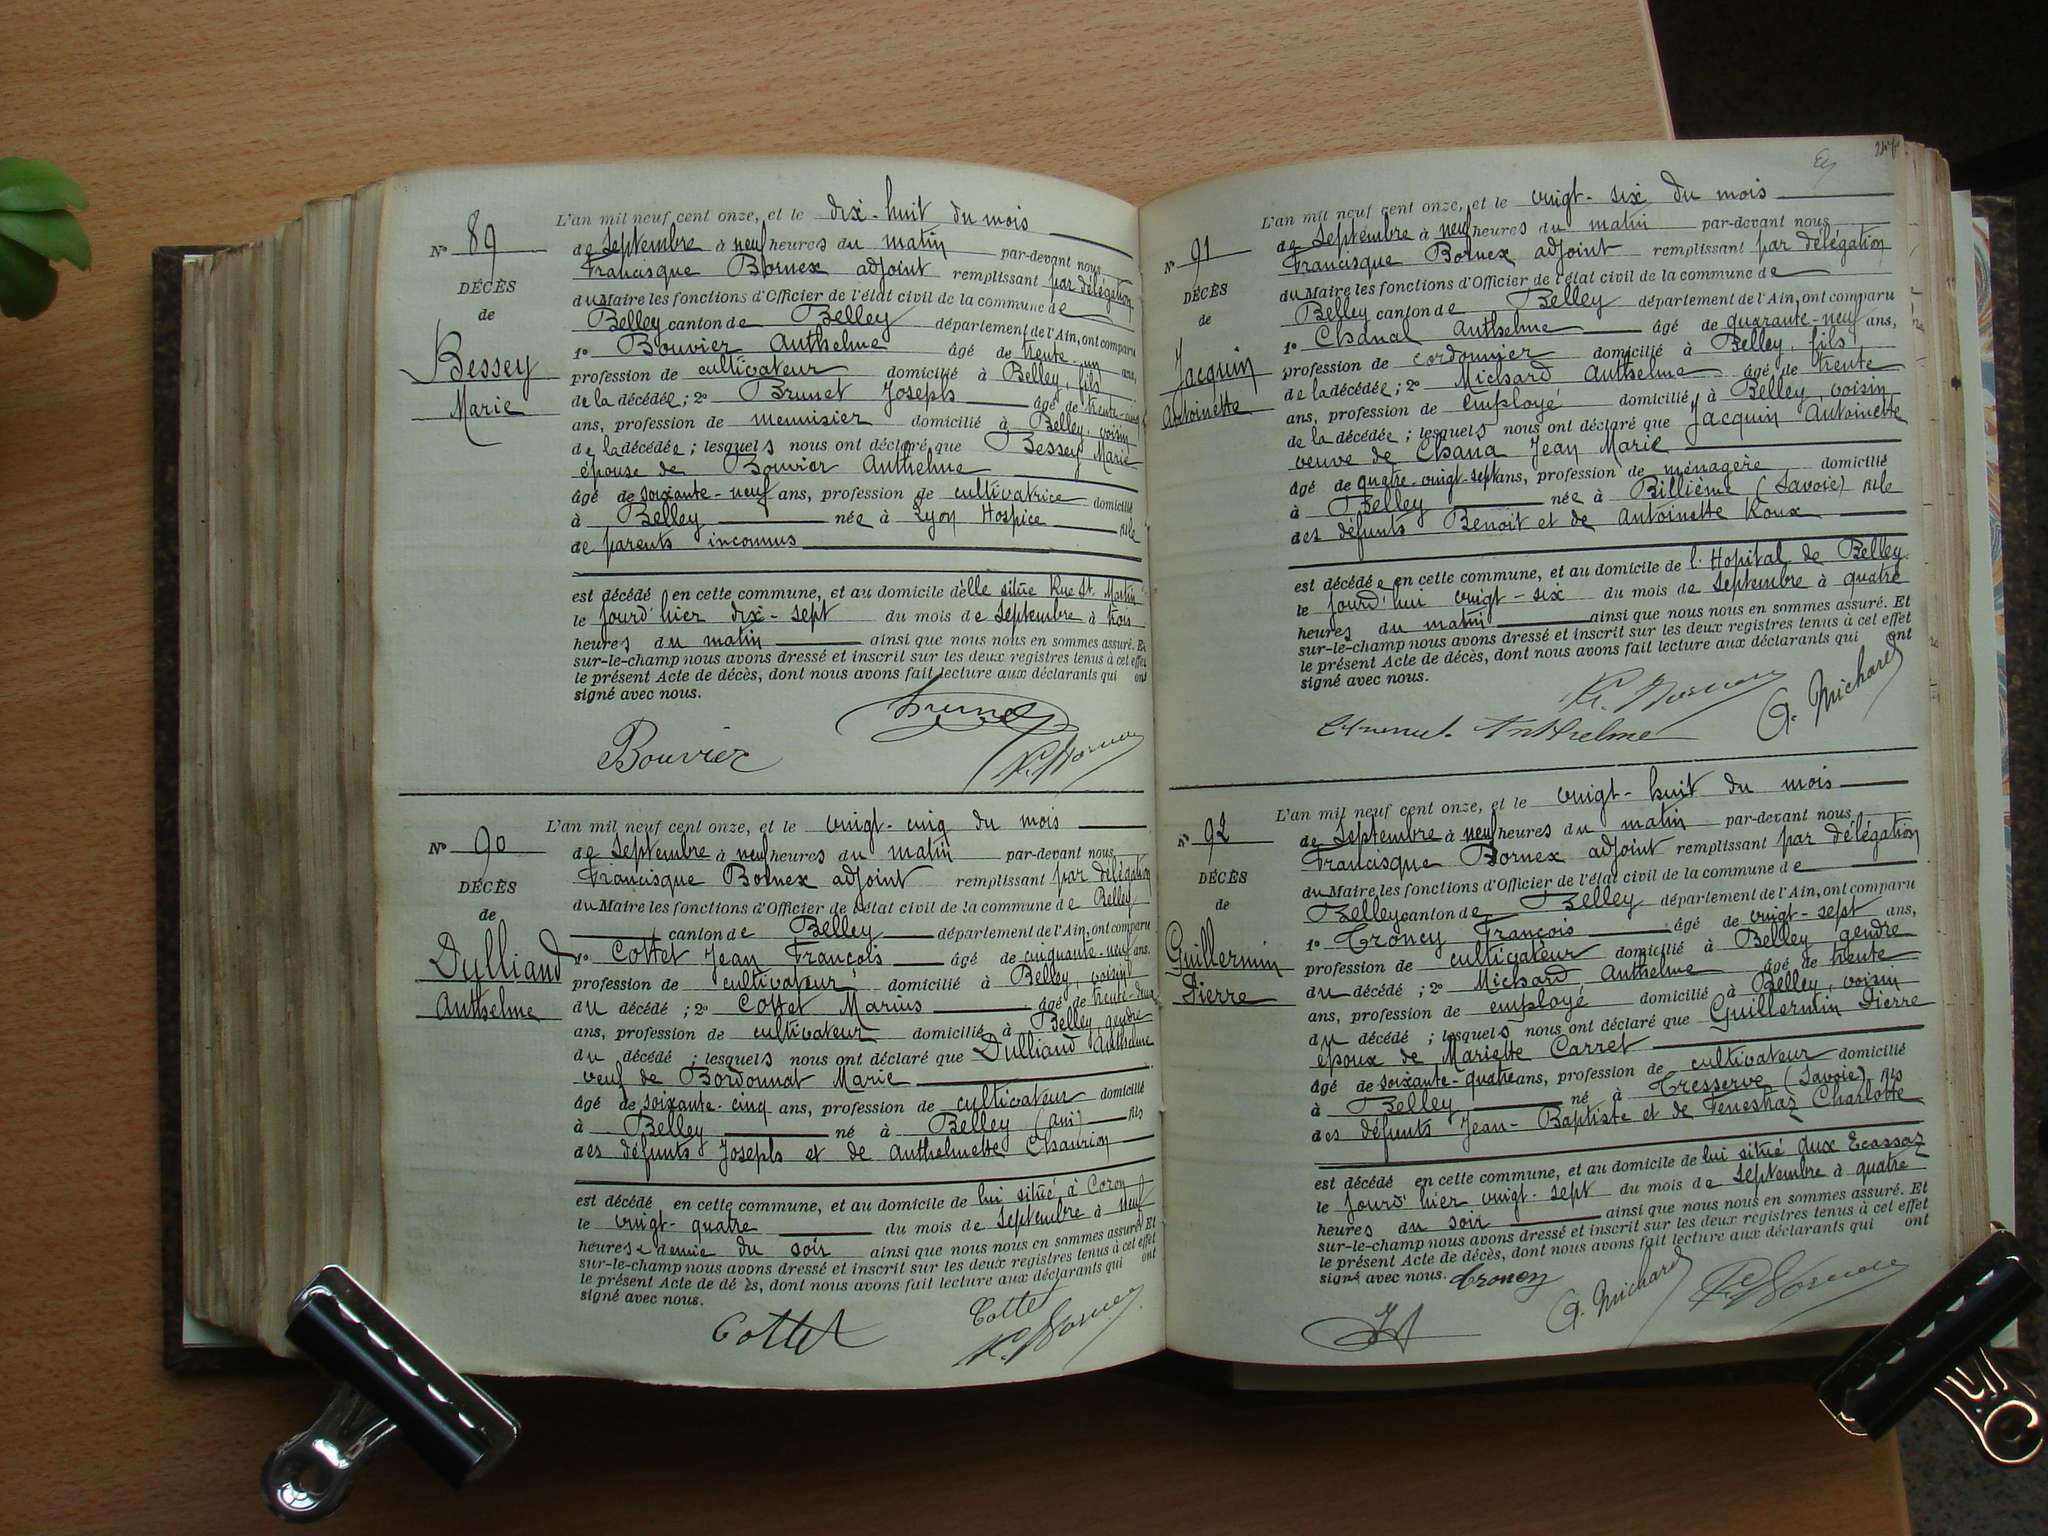 L'an mil neuf cent onze, et le dix-huit du mois
N° 89
de Septembre à neuf heures du matin par-devant nous
Francisque Bornex adjoint remplissant par délégation
DÉCÈS
du Maire les fonctions d'Officier de l'état civil de la commune de
de
Belley canton de Belley département de l'Ain, ont comparu
Bessey
Marie
1° Bouvier Anthelme âgé de trente-un ans,
profession de cultivateur domicilié à Belley, fils
de la décédée ; 2° Brunet Joseph âgé de trente-cinq
ans, profession de menuisier domicilié à Belley, voisin
de la décédée ; lesquels nous ont déclaré que Bessey Marie
épouse de Bouvier Anthelme
âgé de soixante-neuf ans, profession de cultivatrice domicilié
à Belley née à Lyon Hospice fille
de parents inconnus
est décédé en cette commune, et au domicile d'elle située Rue St. Martin
le jourd'hier dix-sept du mois de Septembre à trois
heures du matin ainsi que nous nous en sommes assuré. Et
sur-le-champ nous avons dressé et inscrit sur les deux registres tenus à cet effet
le présent Acte de décès, dont nous avons fait lecture aux déclarants qui ont
signé avec nous.
Brunet
Bouvier
F. Bornex
L'an mil neuf cent onze, et le vingt-cinq du mois
N° 90
de Septembre à neuf heures du matin par-devant nous
Francisque Bornex adjoint remplissant par délégation
DÉCÈS
du Maire les fonctions d'Officier de l'état civil de la commune de Belley
de
canton de Belley département de l'Ain, ont comparu
Dulliand
Anthelme
1° Cottet Jean François âgé de cinquante-neuf ans.
profession de cultivateur domicilié à Belley, voisin
du décédé ; 2° Cottet Marius âgé de trente-deux
ans, profession de cultivateur domicilié à Belley, gendre
du décédé ; lesquels nous ont déclaré que Dulliand Anthelme
veuf de Bordonnat Marie
âgé de soixante-cinq ans, profession de cultivateur domicilié
à Belley né à Belley (ain) fils
des défunts Joseph et de Anthelmette Chaurion
est décédé en cette commune, et au domicile de lui situé à Coron
le vingt-quatre du mois de Septembre à neuf
heures et demie du soir ainsi que nous nous en sommes assuré Et
sur-le-champ nous avons dressé et inscrit sur les deux registres tenus à cet effet
le présent Acte de dé ès, dont nous avons fait lecture aux déclarants qui ont
signé avec nous.
Cottet
Cottet
F. Bornex
247
L'an mil neuf cent onze, et le vingt-six du mois
N° 91
de Septembre à neuf heures du matin par-devant nous
Francisque Bornex adjoint remplissant par délégation
DÉCÈS
du Maire les fonctions d'Officier de l'état civil de la commune de
de
Belley canton de Belley département de l'Ain, ont comparu
Jacquin
Antoinette
1° Chanal Anthelme âgé de quarante-neuf ans,
profession de cordonnier domicilié à Belley, fils
de la décédée ; 2° Michard Anthelme âgé de trente
ans, profession de employé domicilié à Belley, voisin
de la décédée ; lesquels nous ont déclaré que Jacquin Antoinette
veuve de Chana Jean Marie
âgé de quatre-vingt-sept ans, profession de ménagère domicilié
à Belley née à Billième (Savoie) fille
des défunts Benoit et de Antoinette Roux
est décédée en cette commune, et au domicile de l'Hopital de Belley.
le jourd'hui vingt-six du mois de Septembre à quatre
heures du matin ainsi que nous nous en sommes assuré. Et
sur-le-champ nous avons dressé et inscrit sur les deux registres tenus à cet effet
le présent Acte de décès, dont nous avons fait lecture aux déclarants qui ont
signé avec nous.
F. Bornex
A. Michard
Anthelme
L'an mil neuf cent onze, et le vingt-huit du mois
N° 92
de Septembre à neuf heures du matin par-devant nous
Francisque Bornex adjoint remplissant par délégation
DÉCÈS
du Maire les fonctions d'Officier de l'état civil de la commune de
de
Belley canton de Belley département de l'Ain, ont comparu
Guillermin
Pierre
1° Troncy François âgé de vingt-sept ans,
profession de cultivateur domicilié à Belley, gendre
du décédé ; 2° Michard Anthelme âgé de trente
ans, profession de employé domicilié à Belley, voisin
du décédé ; lesquels nous ont déclaré que Guillermin Pierre
époux de Mariette Carret
âgé de soixante-quatre ans, profession de cultivateur domicilié
à Belley né à Tresserve (Savoie) fils
des défunts Jean-Baptiste et de Feneshaz Charlotte
est décédé en cette commune, et au domicile de lui situé aux Ecassaz
le jourd'hier vingt-sept du mois de Septembre à quatre
heures du soir ainsi que nous nous en sommes assuré. Et
sur-le-champ nous avons dressé et inscrit sur les deux registres tenus à cet effet
le présent Acte de décès, dont nous avons fait lecture aux déclarants qui ont
signé avec nous. Troncy
A. Michard
F. Bornex